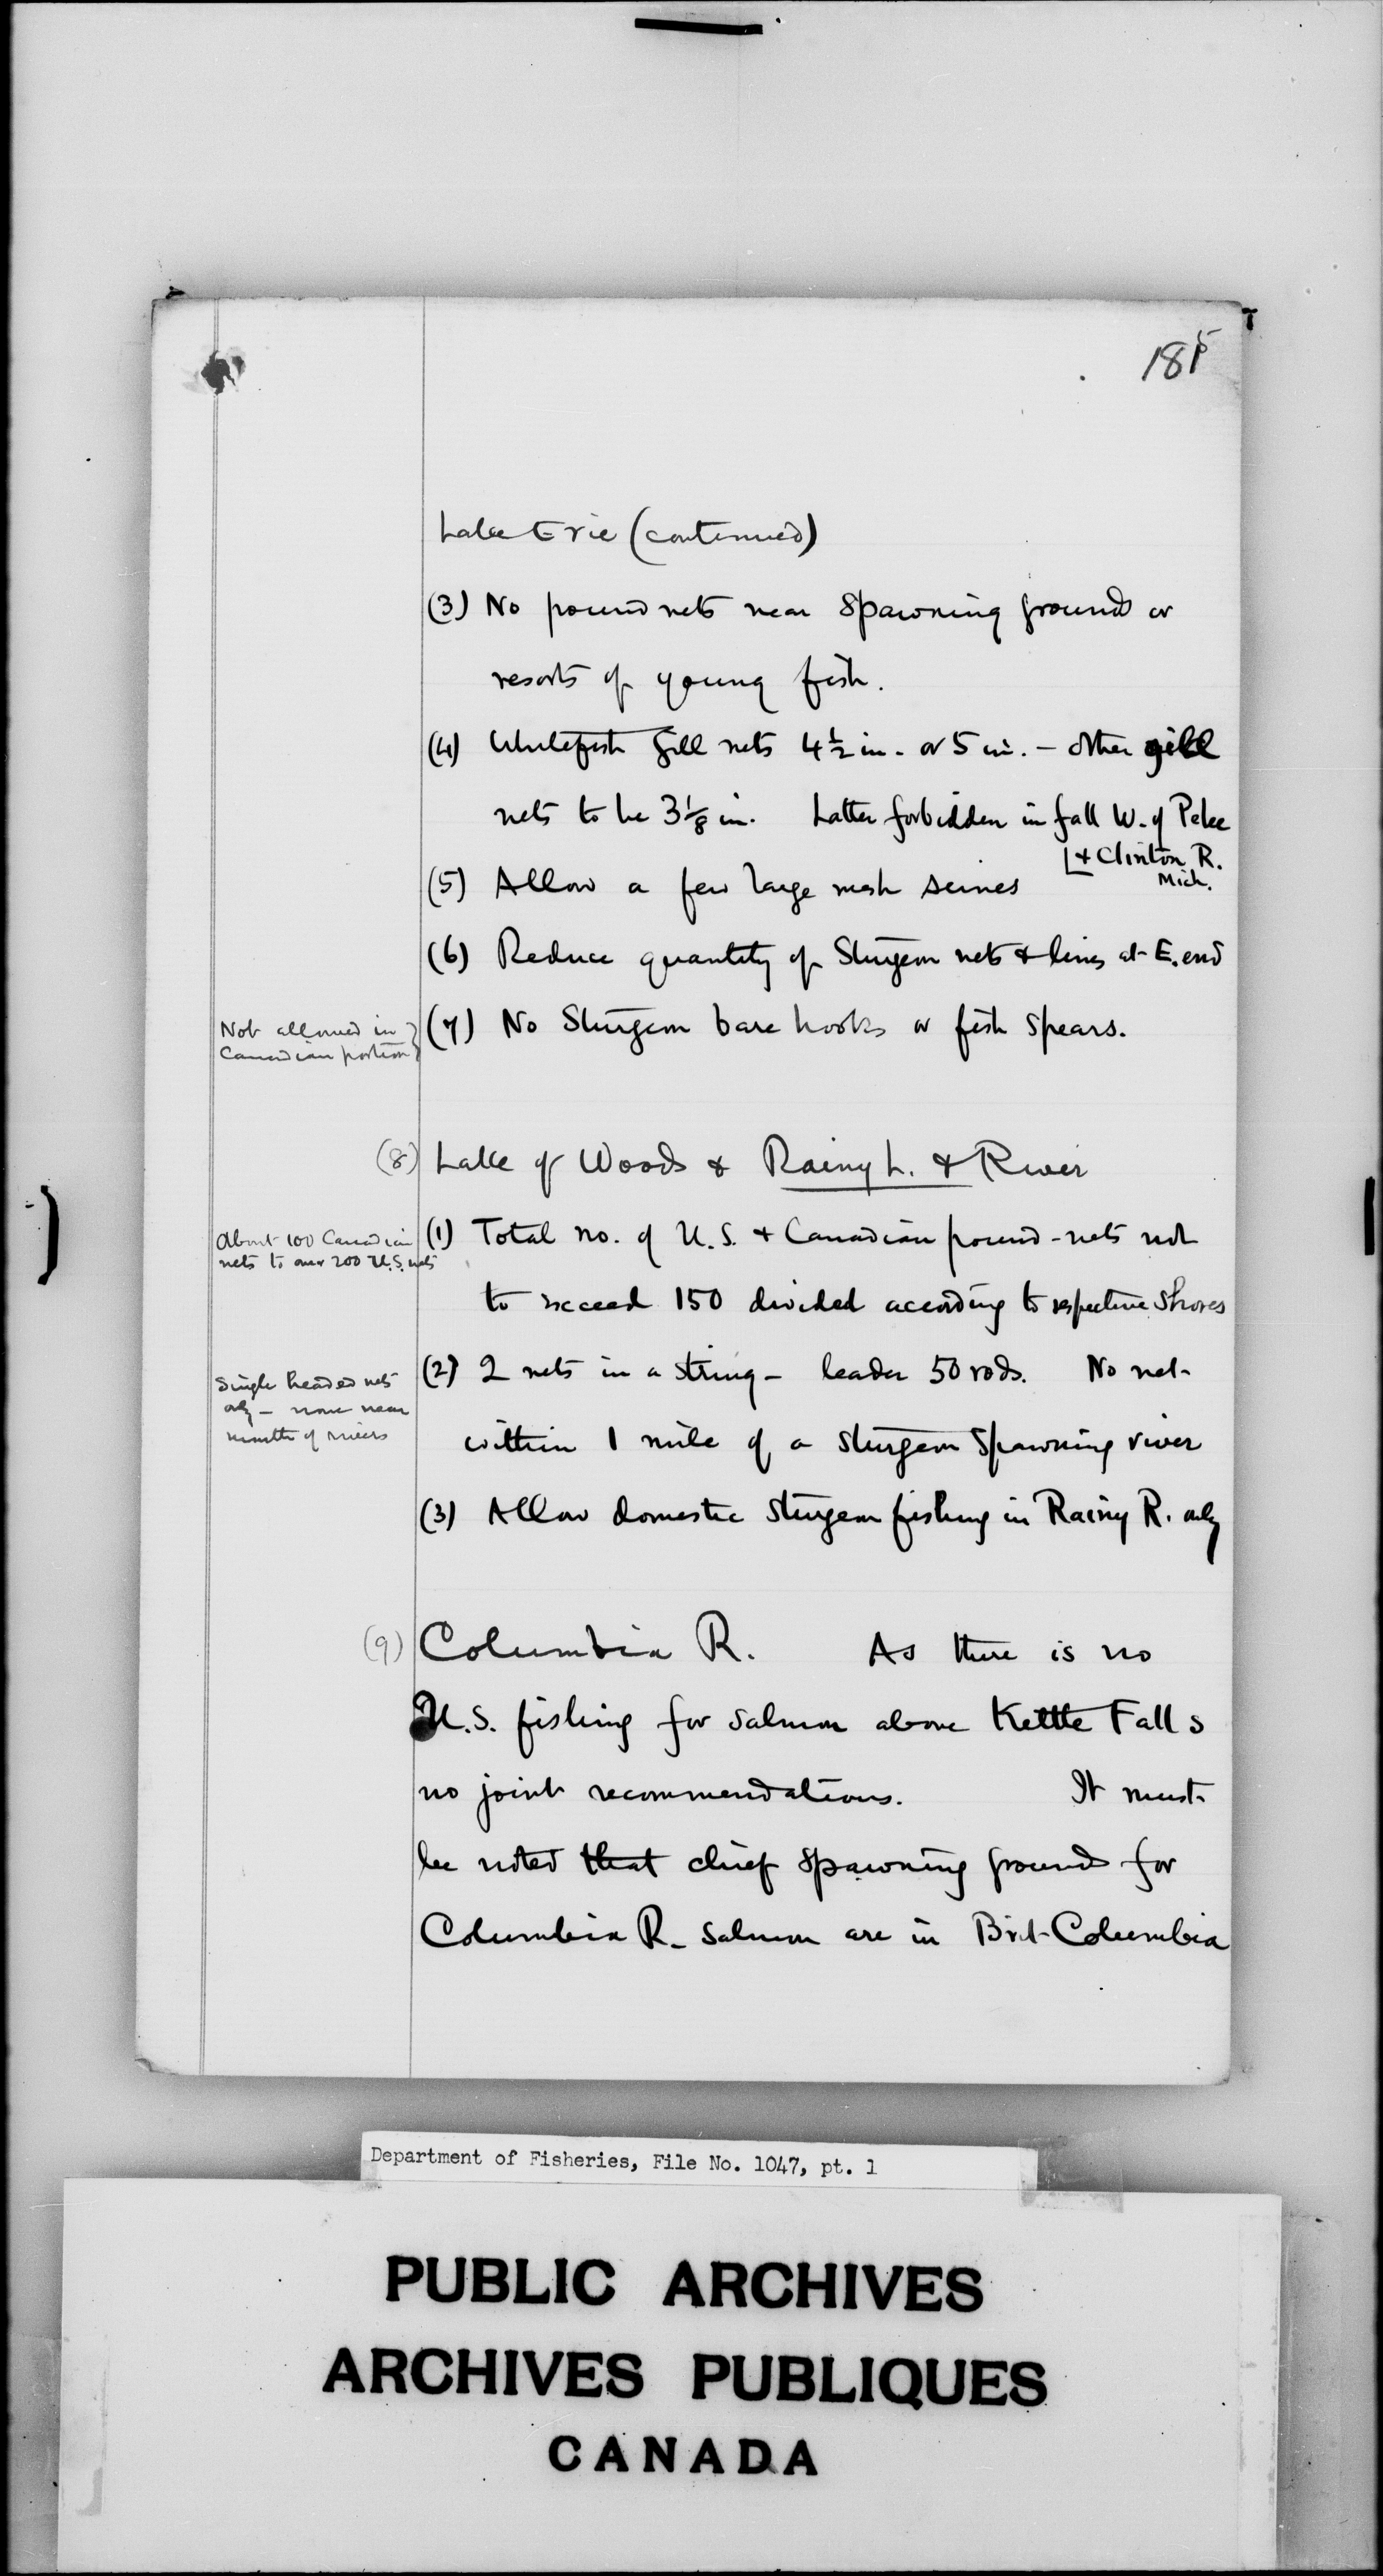 185
Lake Erie (continued)
(3) No pound nets near spawning grounds or
resorts of young fish.
(4) Whitefish gill nets 4½ in. or 5 in. – other gill
nets to be 3⅛ in. Latter forbidden in fall W. of Pelee
[& Clinton R.
Mich.
(5) Allow a few large mesh seines
(6) Reduce quantity of Sturgeon nets & lines at E. end
Not allowed in
Canadian portion}
(7) No Sturgeon bare hooks or fish spears.
(8) Lake of Woods & Rainy L. & River
About 100 Canadian
nets to over 200 U.S. nets
(1) Total no. of U.S. & Canadian pound-nets not
to exceed 150 divided according to respective shores
Single headed nets
only – none near
mouths of rivers
(2) 2 nets in a string – leader 50 rods. No net
within 1 mile of a sturgeon spawning river
(3) Allow domestic sturgeon fishing in Rainy R. only
(9) Columbia R. As there is no
U.S. fishing for salmon above Kettle Falls
no joint recommendations. It must
be noted that chief spawning grounds for
Columbia R. salmon are in Brit Columbia
Department of Fisheries, File No. 1047, pt. 1
PUBLIC ARCHIVES
ARCHIVES PUBLIQUES
CANADA